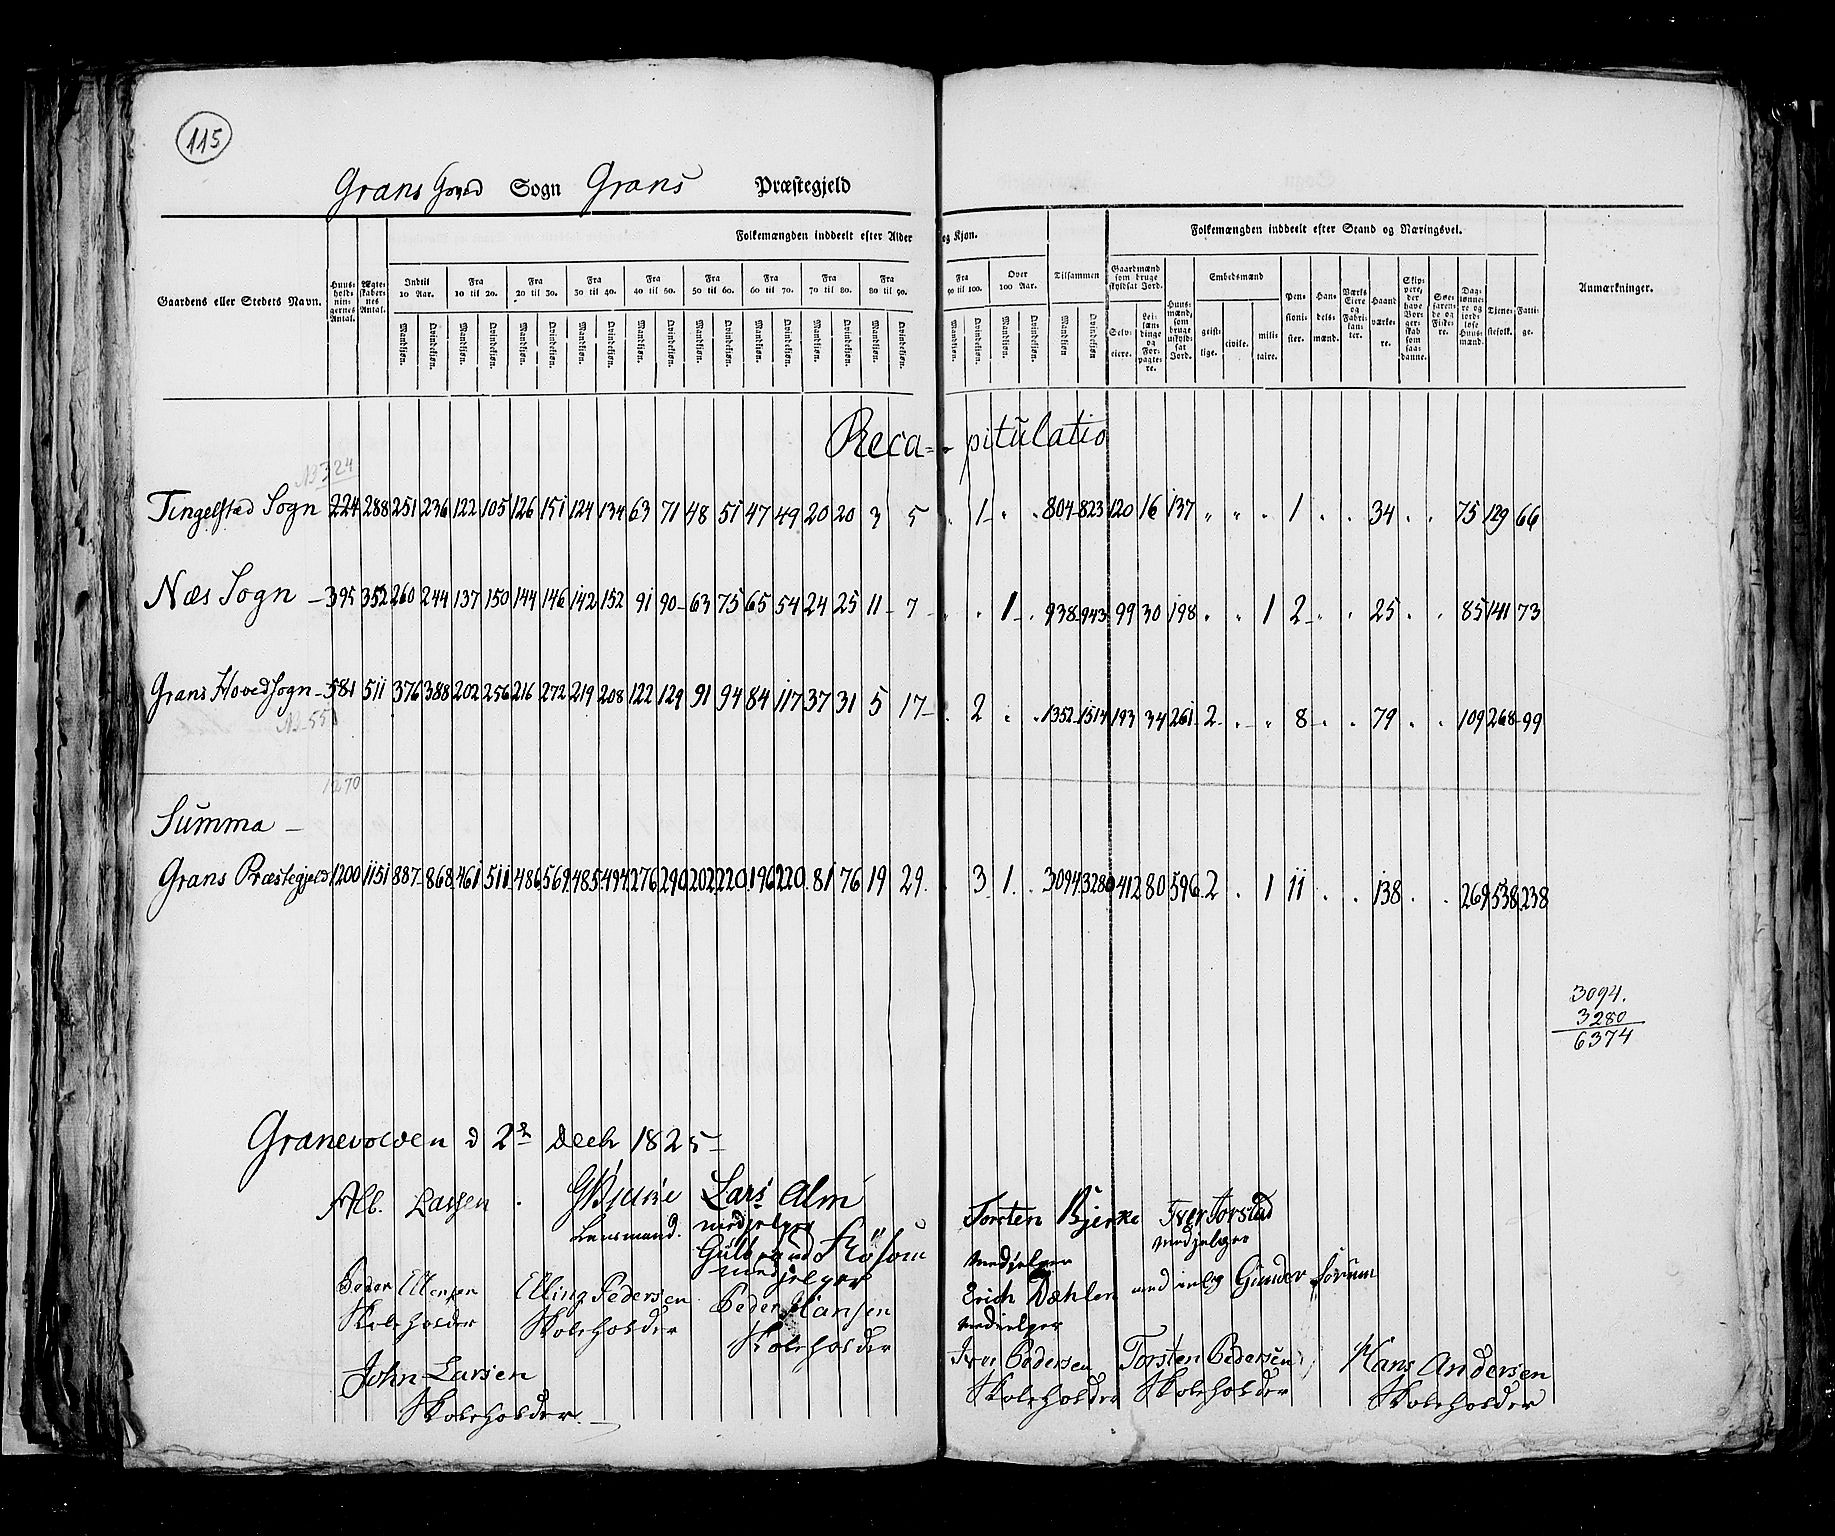 115
Grans Hoved Sogn Grans Præstegjeld
Gaardens eller Stedets Navn.
Huusholdningernes Antal.
Ægteskabernes Antal.
Folkemængden inddeelt efter Alder og Kjøn.
Indtil 10 Aar. Fra 10 til 20. Fra 20 til 30. Fra 30 til 40. Fra 40 til 50. Fra 50 til 60. Fra 60 til 70. Fra 70 til 80. Fra 80 til 90. Fra 90 til 100. Over 100 Aar. Tilsammen
Mandkjøn. Qvindekjøn. Mandkjøn. Qvindekjøn. Mandkjøn. Qvindekjøn. Mandkjøn. Qvindekjøn. Mandkjøn. Qvindekjøn. Mandkjøn. Qvindekjøn. Mandkjøn. Qvindekjøn. Mandkjøn. Qvindekjøn. Mandkjøn. Qvindekjøn. Mandkjøn. Qvindekjøn. Mandkjøn. Qvindekjøn. Mandkjøn Qvindekjøn
Folkemængden inddeelt efter Stand og Næringsvei.
Gaardmænd som bruge skyldsat Jord.
Selveiere.
Leilændinge og Forpagtere.
Huusmænd som bruge uskyldsat Jord.
Embedsmænd
geistlige. civile. militaire.
Pensionister.
Handelsmænd.
Værks Eiere og Fabrikanter.
Haandværkere.
Skippere, der have Borgerskab som saadanne.
Søefarende og Fiskere.
Daglønnere og jordløse Huusmænd.
Tjenestefolk.
Fattige.
Anmærkninger.
Reca=pitulatio
NB 324
Tingelstad Sogn 224 288 251 236 122 105 126 151 124 134 63 71 48 51 47 49 20 20 3 5 " 1 " " 804 823 120 16 137 " " " 1 " " 34 " " 75 129 66
Næs Sogn 395 352 260 244 137 150 144 146 142 152 91 90 63 75 65 54 24 25 11 7 " " 1 " 938 943 99 30 198 " " 1 2 " " 25 " " 85 141 73
Grans Hovedsogn 581 511 376 388 202 256 216 272 219 208 122 129 91 94 84 117 37 31 5 17 " 2 " " 1352 1514 193 34 261 2 " " 8 " " 79 " " 109 268 99
NB 551
1270
Summa
Grans Præstegjeld 1200 1151 887 868 461 511 486 569 485 494 276 290 202 220 196 220 81 76 19 29 " 3 1 " 3094 3280 412 80 596 2 " 1 11 " " 138 " " 269 538 238
3094.
3280
6374
Granevolden d 2de Decbr 1825
Alb. Lassen Lars Alm
Lensmand. medhjelper
Torsten Bjerke Iver Torstad
Medhjelper Medhjelper
Gulbrand Røsom
medhjelper
Erich Dæhlen
Medhjelper
Gunder
Peder Ellensen Elling Pedersen Peder Hansen
Skoleholder Skoleholder Skoleholder
John Larsen
Skoleholder
Iver Pedersen Torsten Pedersen Hans Andersen
Skoleholder Skoleholder Skoleholder